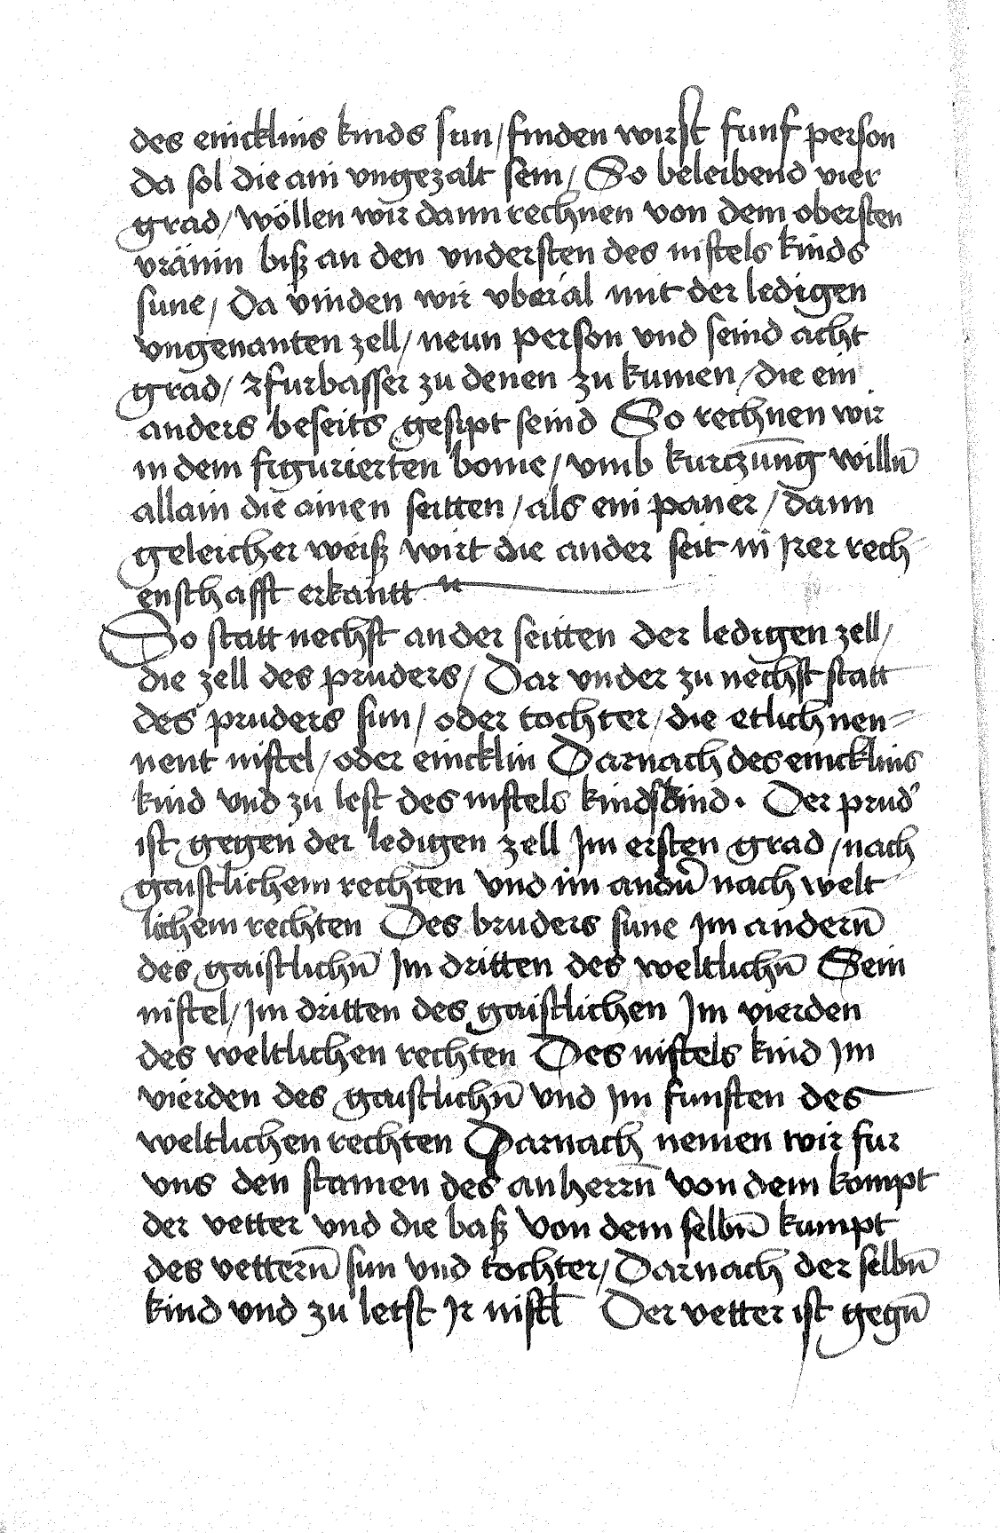 des enicklins kinds sun / finden wirst funf person
da sol die ain vngezalt sein / So beleibend vier
grad / wöllen wir dann rechnen von dem obersten
vränin biß an den vndersten des niftels kinds
sune / Da vinden wir vberal mit der ledigen
vngenanten zell / neun person vnd seind acht
grad / furbasser zu denen zu kumen / die ein
anders beseits gesipt seind So rechnen wir
in dem figurierten bome / vmb kurczung willn̄
allain die ainen seitten / als ein paner / dann
geleicher weiß wirt die ander seit in irer rech⸗
enschafft erkantt
So statt nechst an der seitten der ledigen zell /
die zell des pruders / Dar vnder zu nechst statt
des pruders sun / oder tochter / die etlich nen⸗
nent niftel / oder enicklin Darnach des enicklins
kind vnd zu lest des niftels kindskind . Der prud'
ist gegen der ledigen zell Im ersten grad / nach
gaistlichem rechten vnd im andn̄ nach welt⸗
lichem rechten Des bruders sune Im andern̄
des gaistlichn̄ Im dritten des weltlichn̄ Sein
niftel / Im dritten des gaistlichen Im vierden
des weltlichen rechten Des niftels kind Im
vierden des gaistlichn̄ vnd Im funften des
weltlichen rechten Darnach nemen wir fur
vns den stamen des anherrn̄ von dem kompt
der vetter vnd die baß von dem selbn̄ kumpt
des vettern̄ sun vnd tochter / Darnach der selbn̄
kind vnd zu letst Ir niftl Der vetter ist gegn̄